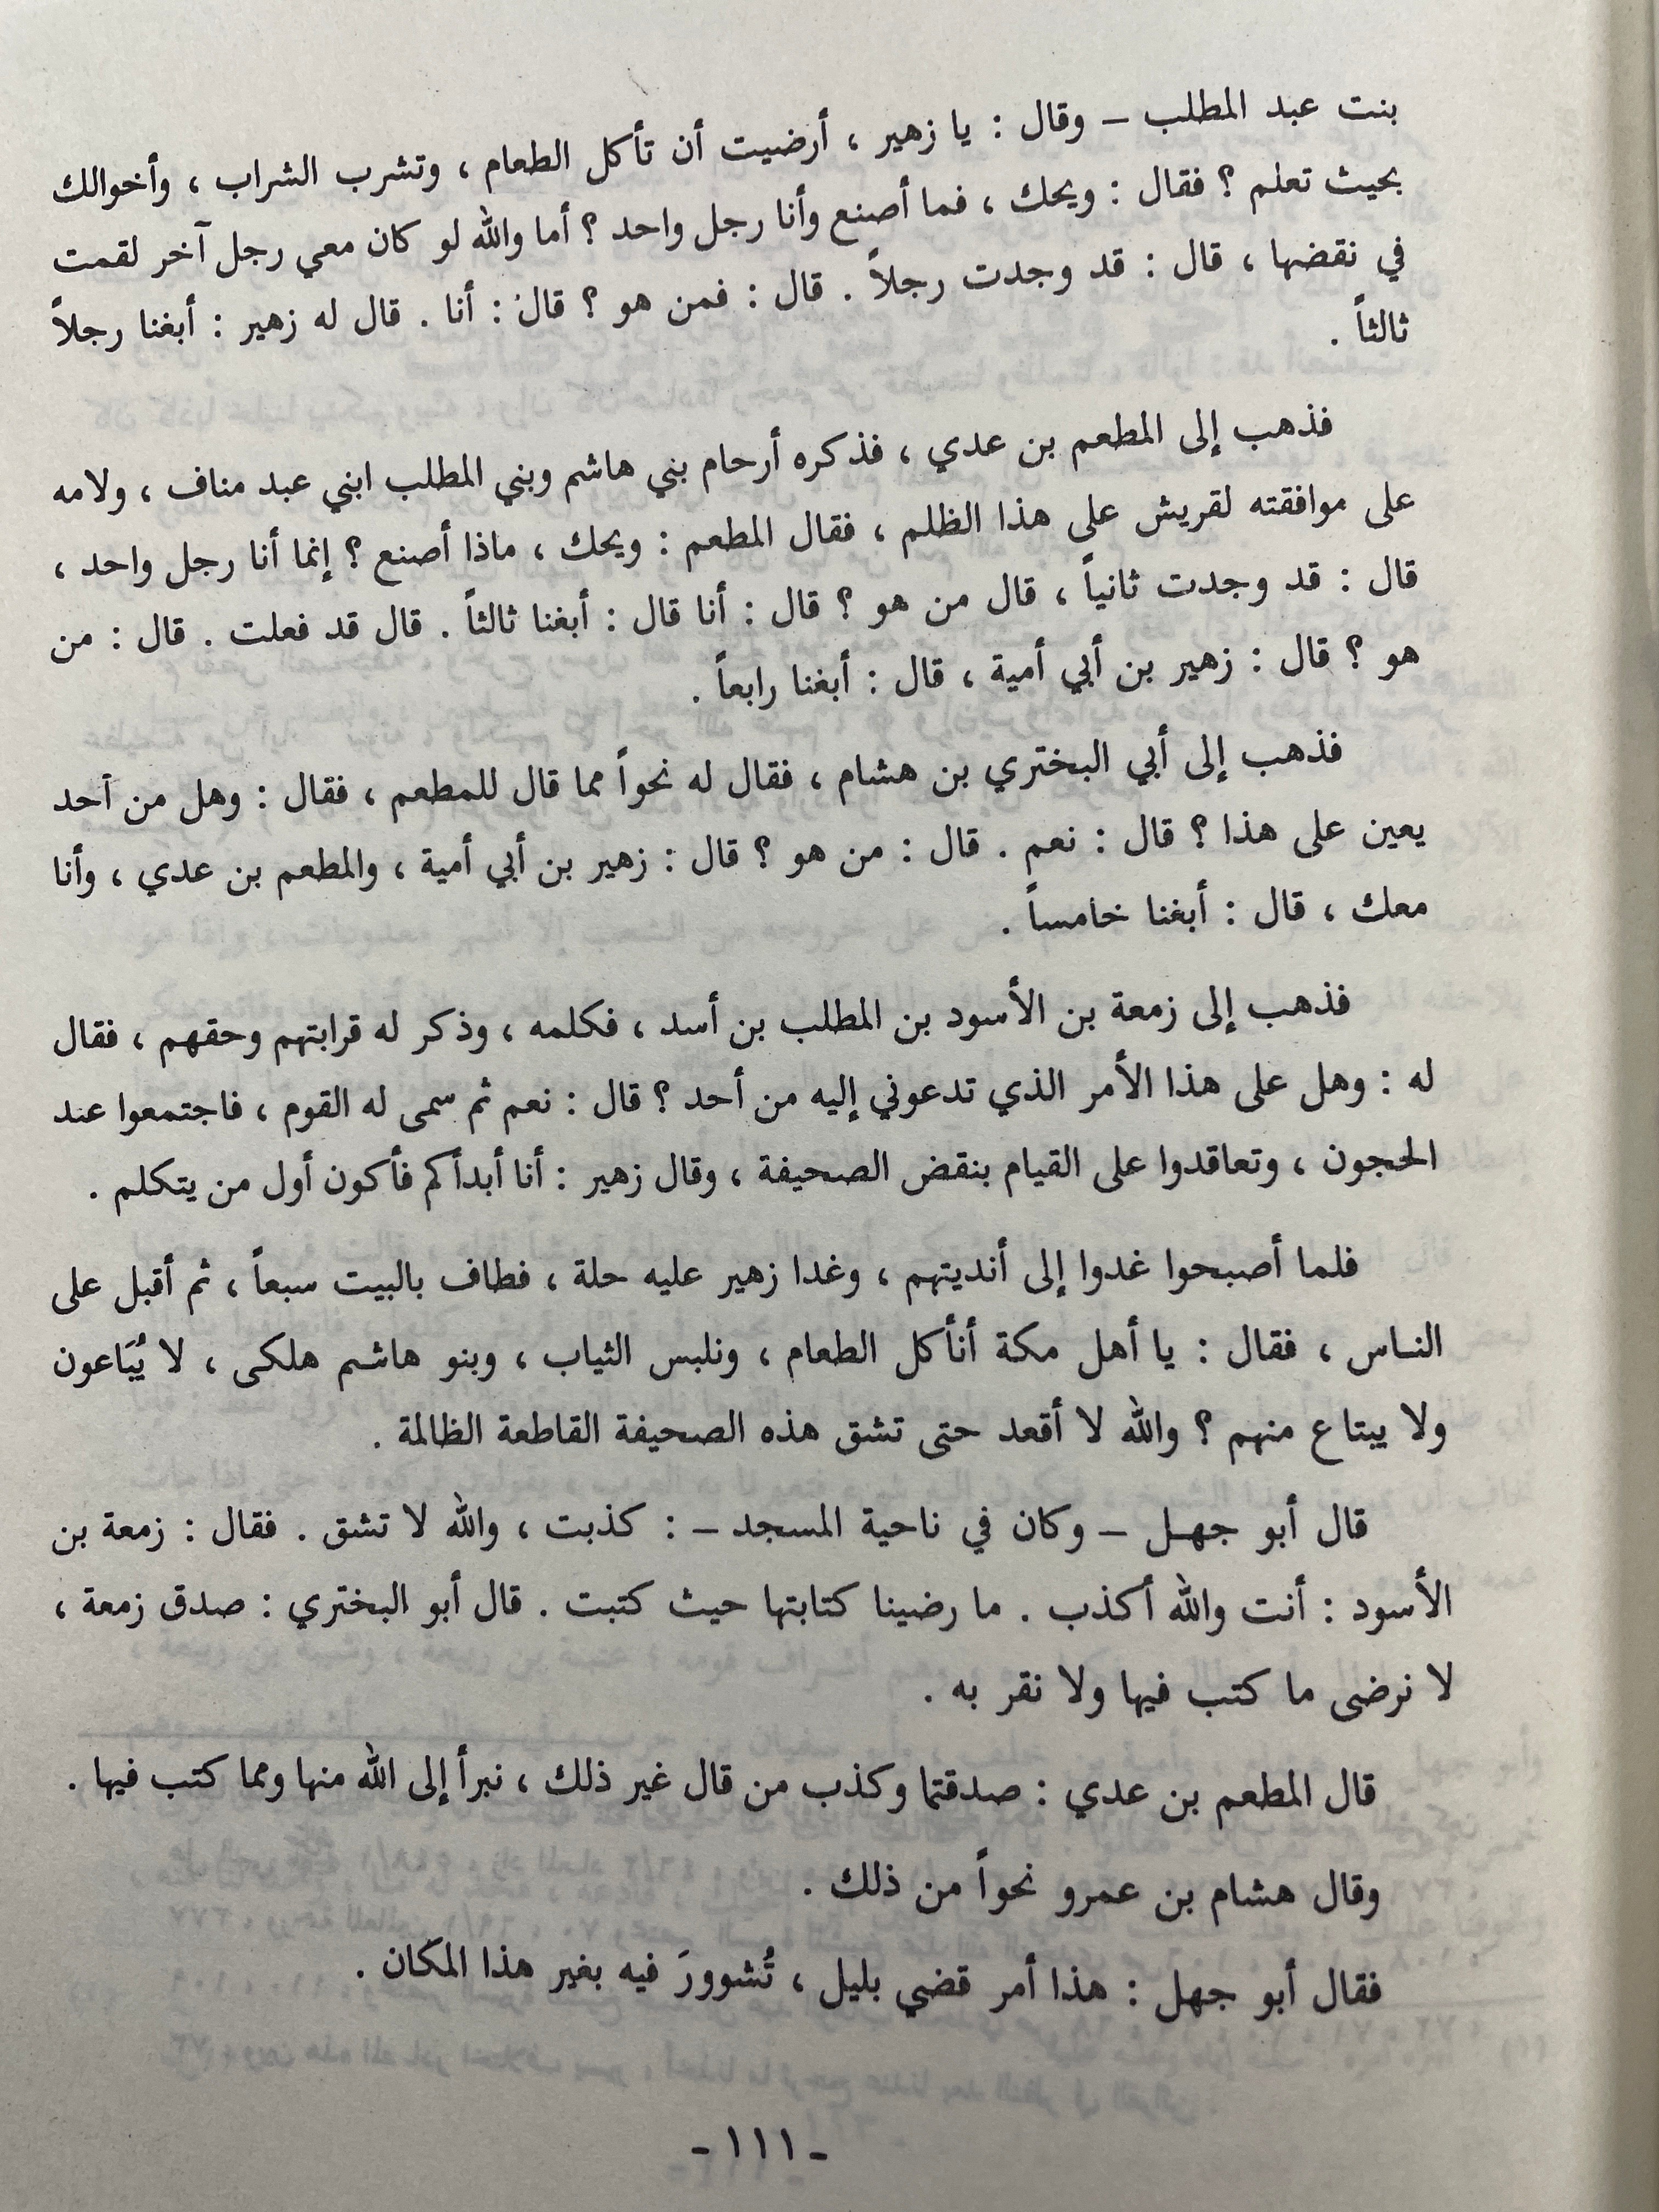 بنت عبد المطلب – وقال : يا زهير ، أرضيت أن تأكل الطعام ، وتشرب الشراب ، وأخوالك
بحيث تعلم ؟ فقال : ويحك ، فما أصنع وأنا رجل واحد ؟ أما والله لو كان معي رجل آخر لقمت
في نقضها ، قال : قد وجدت رجلاً . قال : فمن هو ؟ قال : أنا . قال له زهير : أبغنا رجلاً
ثالثاً .
فذهب إلى المطعم بن عدي ، فذكره أرحام بني هاشم وبني المطلب ابني عبد مناف ، ولامه
على موافقته لقريش على هذا الظلم ، فقال المطعم : ويحك ، ماذا أصنع ؟ إنما أنا رجل واحد ،
قال : قد وجدت ثانياً ، قال من هو ؟ قال : أنا قال : أبغنا ثالثاً . قال قد فعلت . قال : من
هو ؟ قال : زهير بن أبي أمية ، قال : أبغنا رابعاً .
فذهب إلى أبي البختري بن هشام ، فقال له نحواً مما قال للمطعم ، فقال : وهل من أحد
يعين على هذا ؟ قال : نعم . قال : من هو ؟ قال : زهير بن أبي أمية ، والمطعم بن عدي ، وأنا
معك ، قال : أبغنا خامساً .
فذهب إلى زمعة بن الأسود بن المطلب بن أسد ، فكلمه ، وذكر له قرابتهم وحقهم ، فقال
له : وهل على هذا الأمر الذي تدعوني إليه من أحد ؟ قال : نعم ثم سمى له القوم ، فاجتمعوا عند
الحجون ، وتعاقدوا على القيام بنقض الصحيفة ، وقال زهير : أنا أبدأكم فأكون أول من يتكلم .
فلما أصبحوا غدوا إلى أنديتهم ، وغدا زهير عليه حلة ، فطاف بالبيت سبعاً ، ثم أقبل على
الناس ، فقال : يا أهل مكة أنأكل الطعام ، ونلبس الثياب ، وبنو هاشم هلكى ، لا يُبَاعون
ولا يبتاع منهم ؟ والله لا أقعد حتى تشق هذه الصحيفة القاطعة الظالمة .
قال أبو جهل – وكان في ناحية المسجد – : كذبت ، والله لا تشق . فقال : زمعة بن
الأسود : أنت والله أكذب . ما رضينا كتابتها حيث كتبت . قال أبو البختري : صدق زمعة ،
لا نرضى ما كتب فيها ولا نقر به .
قال المطعم بن عدي : صدقتما وكذب من قال غير ذلك ، نبرأ إلى الله منها ومما كتب فيها .
وقال هشام بن عمرو نحواً من ذلك .
فقال أبو جهل : هذا أمر قضي بليل ، تُشوورَ فيه بغير هذا المكان .
- ١١١ -